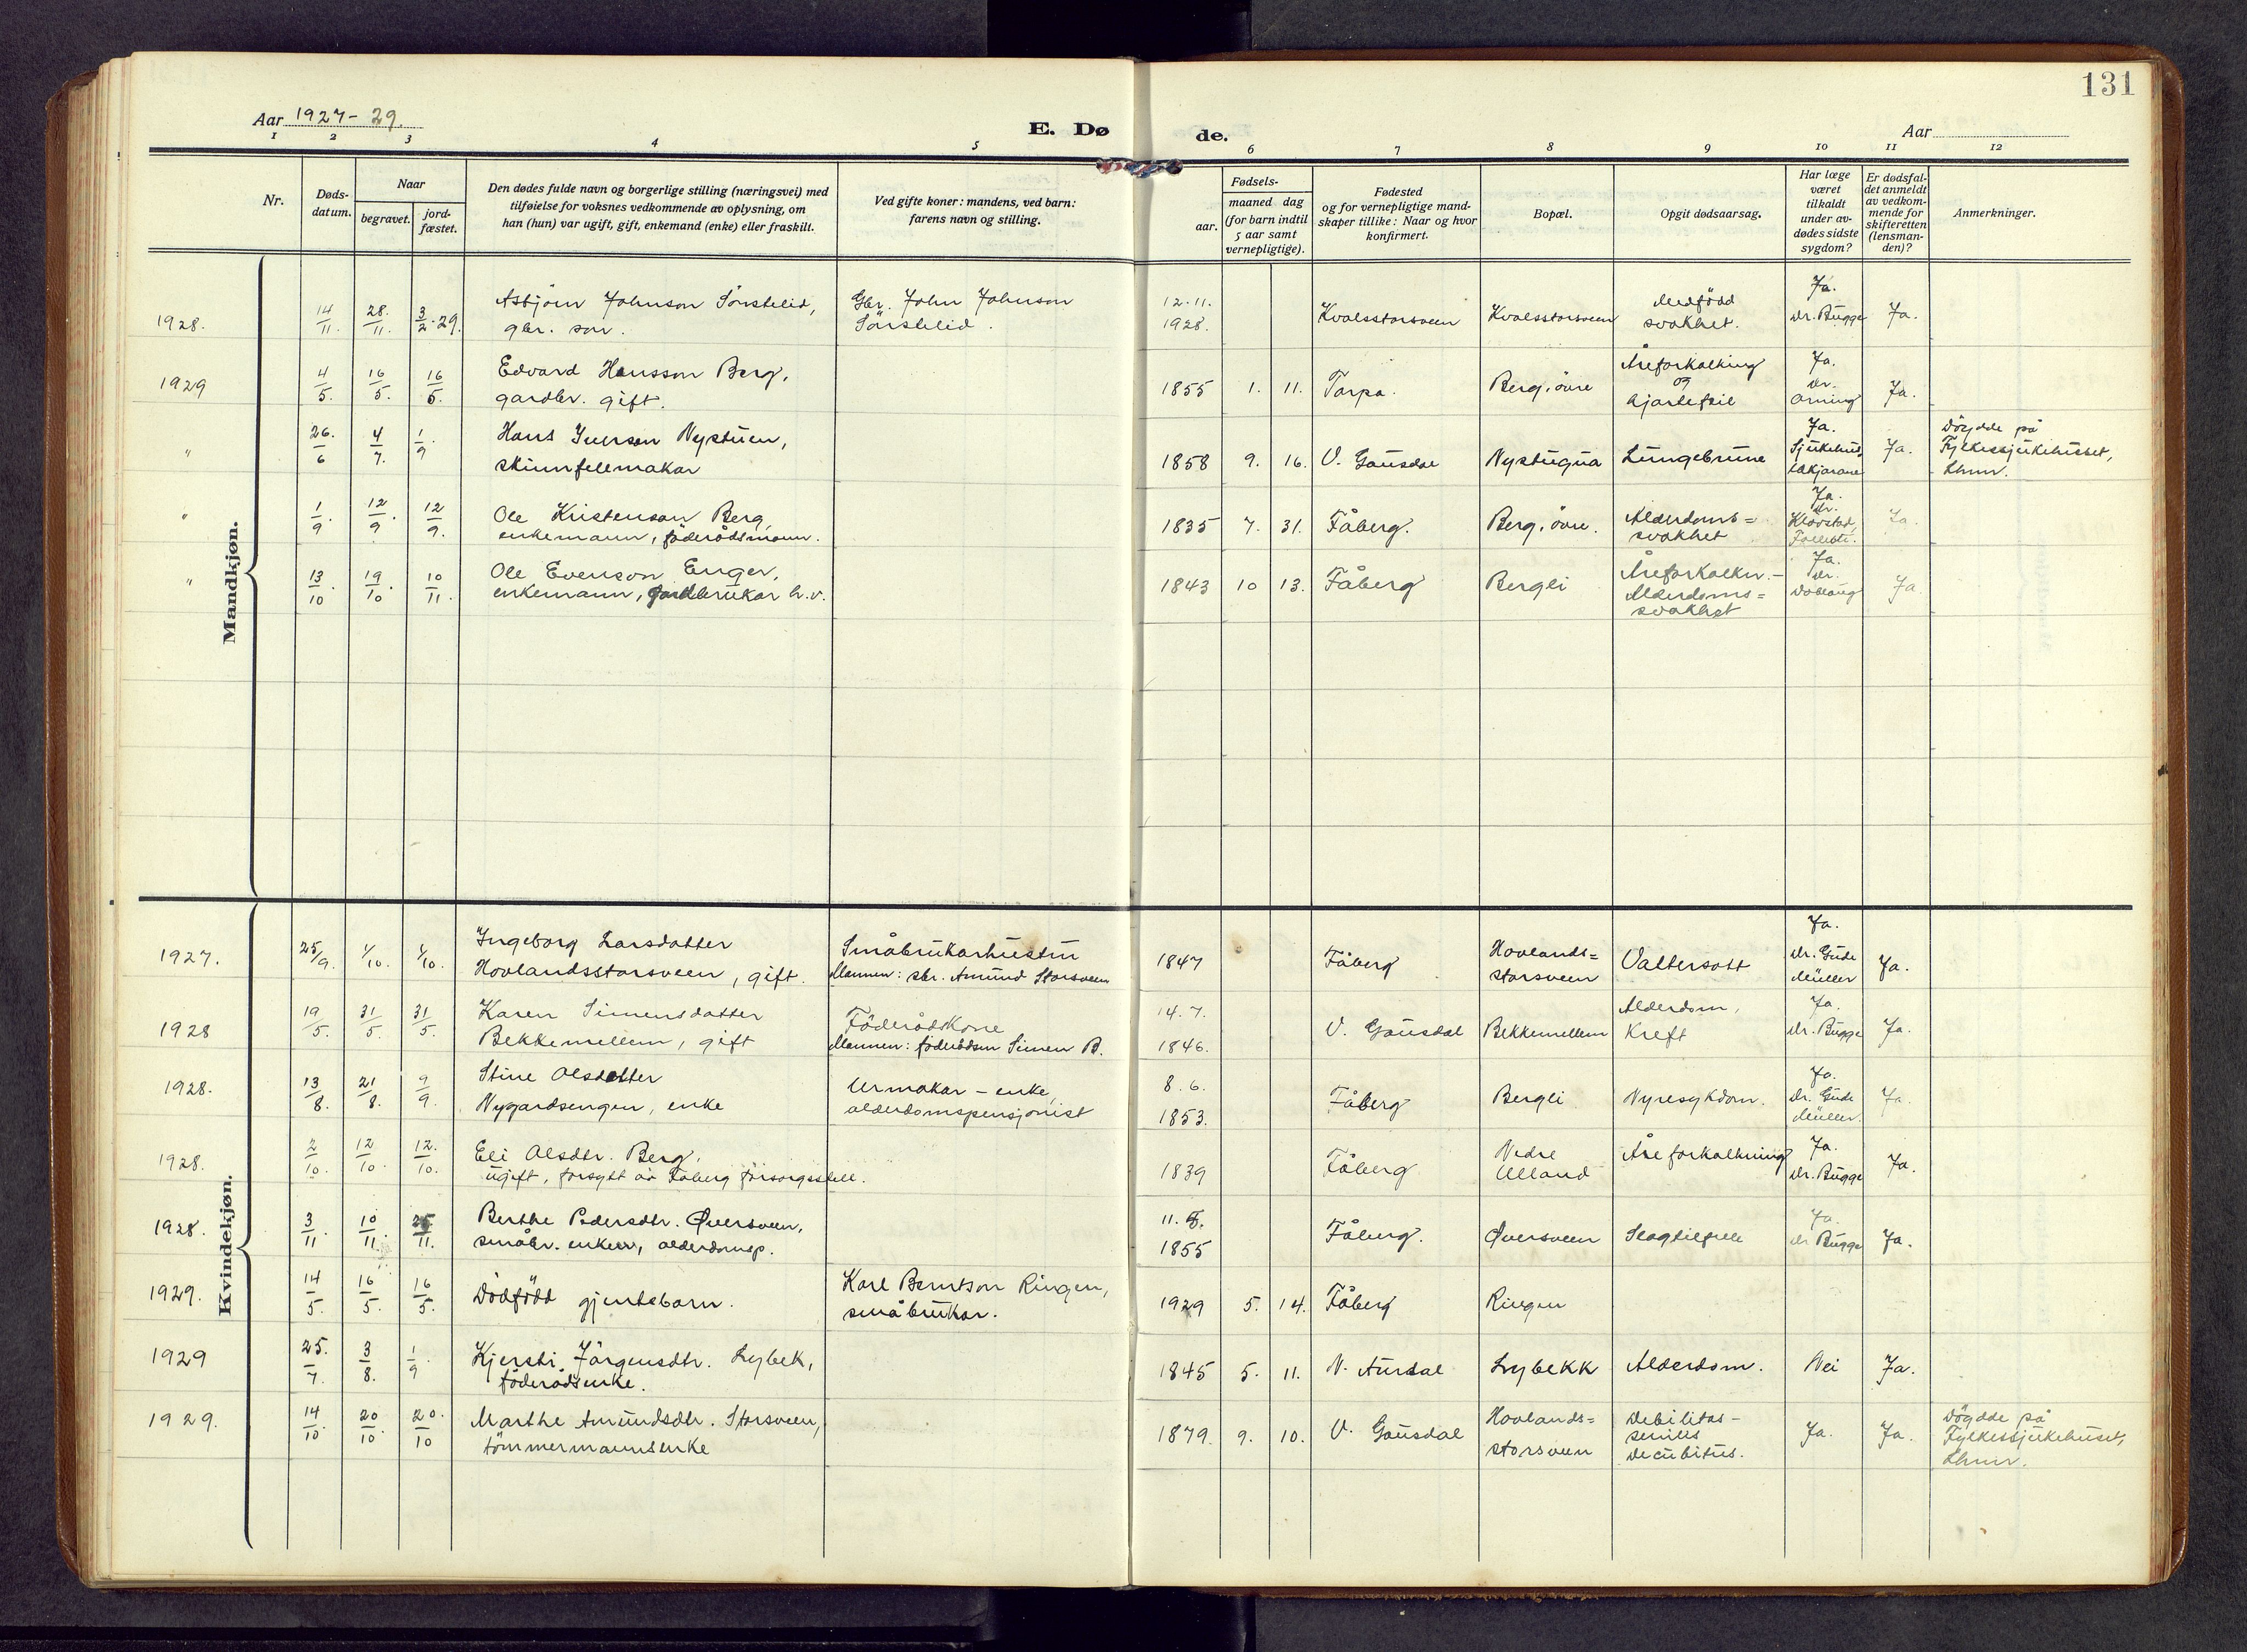 131
Aar 1927-29.
E. Dø
de.
Aar
1 2 3 4 5 6 7 8 9 10 11 12
Nr.
Døds-
datum.
Naar
begravet.
jord-
fæstet.
Den dødes fulde navn og borgerlige stilling (næringsvei) med
tilføielse for voksnes vedkommende av oplysning, om
han (hun) var ugift, gift, enkemand (enke) eller fraskilt.
Ved gifte koner: mandens, ved barn:
farens navn og stilling.
Fødsels-
aar.
maaned dag
(for barn indtil
5 aar samt
vernepligtige).
Fødested
og for vernepligtige mand-
skaper tillike: Naar og hvor
konfirmert.
Bopæl.
Opgit dødsaarsag.
Har læge
været
tilkaldt
under av-
dødes sidste
sygdom?
Er dødsfal-
det anmeldt
av vedkom-
mende for
skifteretten
(lensman-
den)?
Anmerkninger.
Mandkjøn.
1928. 14/11. 28./11. 3/2.29.
Asbjörn Johnson Sörstelid,
gbr. son.
Gbr. John Johnson
Sörstelid.
12.11.
1928.
Kvalsstorsveen Kvalsstorsveen
Medfödd
svakhet.
Ja.
Dr. Bugge
Ja.
1929 4/5. 16/5. 16/5.
Edvard Hansson Berg,
gardbr. gift.
1855 1. 11. Torpa. Berg, övre
Åreforkalking
og
hjartefeil
Ja.
Dr.
Orning
Ja.
" 26./6 4/7. 1/9.
Hans Iverson Nystuen,
skinnfellmakar
1858 9. 16. V. Gausdal Nystugua Lungebrune
Ja.
Sjukehus
lækjarane
Ja.
Döydde på
Fylkessjukehuset,
Lhmr.
" 1/9. 12/9. 12/9.
Ole Kristenson Berg,
enkemann, föderådsmann.
1835 7. 31. Fåberg. Berg, övre.
Alderdoms=
svakhet
Ja.
Dr.
Klovstad,
Follebu.
Ja.
" 13/10 19/10. 10/11.
Ole Evenson Enger,
enkemann, gardbrukar h.v.
1843 10 13. Fåberg Bergli
Åreforkalkn.-
Alderdoms=
svakhet
Ja.
Dr.
Doblaug
Ja.
Kvindekjøn.
1927. 25/9. 1/10. 1/10.
Ingeborg Larsdatter
Hovlandsstorsveen, gift.
Småbrukarhustru
Mannen: sbr. Amund Storsveen
1847 Fåberg
Hovlands=
storsveen
Vattersott
Ja.
Dr. Gude
Müller
Ja.
1928 19/5. 31/5. 31/5.
Karen Simensdatter
Bekkemellem, gift
Föderådskone
Mannen: föderådsm Simen B.
14.7.
1846.
V. Gausdal Bekkemellem
Alderdom,
Kreft
Ja.
Dr. Bugge
Ja.
1928. 13/8. 21/8. 9/9.
Stine Olsdatter
Nygardsengen, enke
Urmakar - enke,
alderdomspensjonist
8.6.
1853.
Fåberg Bergli Nyresykdom.
Ja.
Dr. Gude
Müller.
Ja.
1928. 2/10. 12/10. 12./10.
Eli Olsdtr. Berg,
ugift, forsytt av Fåberg forsorgsstell.
1839 Fåberg
Nedre
Ulland
Åreforkalkning
Ja.
Dr. Bugge
Ja.
1928. 3/11 10/11. 25/11.
Berthe Pedersdtr. Øversveen,
småbr. enke, alderdomsp.
11.
1855
Fåberg. Øversveen Slagtilfelle
Ja.
Dr Bugge
Ja.
1929. 14/5. 16/5. 16/5.
Dödfödd gjentebarn.
Karl Berntson Ringen,
småbrukar.
1929 5. 14. Fåberg Ringen
1929 25./7. 3/8. 1/9.
Kjersti Jörgensdtr. Lybek,
föderådsenke.
1845 5. 11. N. Aurdal Lybekk Alderdom. Nei Ja.
1929. 14/10. 20/10. 20./10
Marthe Amundsdtr. Storsveen,
tömmermannsenke
1879. 9. 10. V. Gausdal
Hovlands=
storsveen
Debilitas-
senilis
Decubitus.
Ja. Ja.
Döydde på
Fylkessjukehuset,
Lhmr.